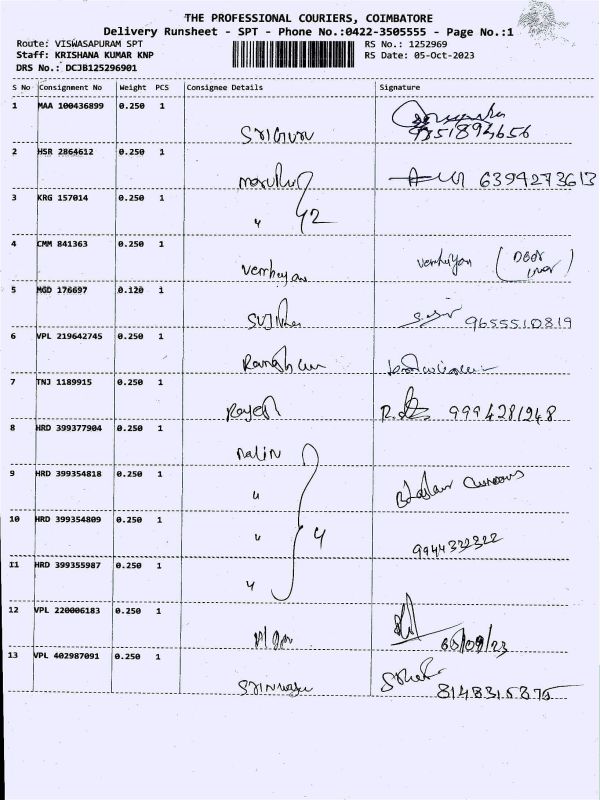 THE PROFESSIONAL COURIERS, COIMBATORE
Delivery Runsheet - SPT - Phone No.:0422-3505555 - Page No.:1
Route: VISWASAPURAM SPT
RS No.: 1252969
Staff: KRISHANA KUMAR KNP
RS Date: 05-Oct-2023
DRS No.: DCJB125296901
S No Consignment No Weight PCS Consignee Details Signature
1 MAA 100436899 0.250 1
9351894656
2 HSR 2864612 0.250 1
6394273613
3 KRG 157014 0.250 1
" 2
4 CMM 841363 0.250 1
5 MGD 176697 0.120 1
9655510819
6 VPL 219642745 0.250 1
7 TNJ 1189915 0.250 1
Rajesh 9994281248
8 HRD 399377904 0.250 1
Nalin
9 HRD 399354818 0.250 1
"
10 HRD 399354809 0.250 1
" 4
9944322322
11 HRD 399355987 0.250 1
"
12 VPL 220006183 0.250 1
13 VPL 402987091 0.250 1
8148315375